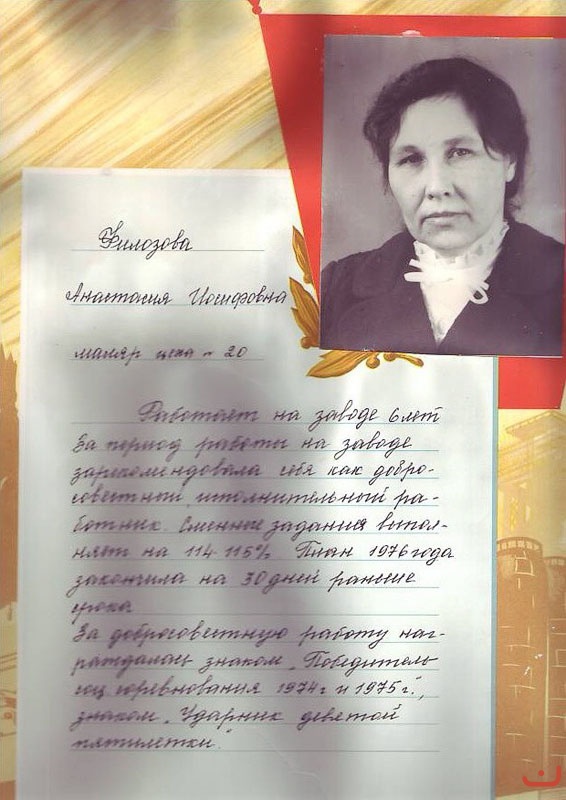 Филозова
Анастасия Иосифовна
маляр цеха № 20
Работает на заводе 6 лет
За период работы на заводе
зарекомендовала себя как добро-
совестный, исполнительный ра-
ботник. Сменные задания выпол-
няет на 114-115% План 1976 года
закончила на 30 дней раньше
срока
За добросовестную работу наг-
раждалась знаком „Победитель
соц. соревнования 1974г и 1975г.",
знаком „Ударник девятой
пятилетки."